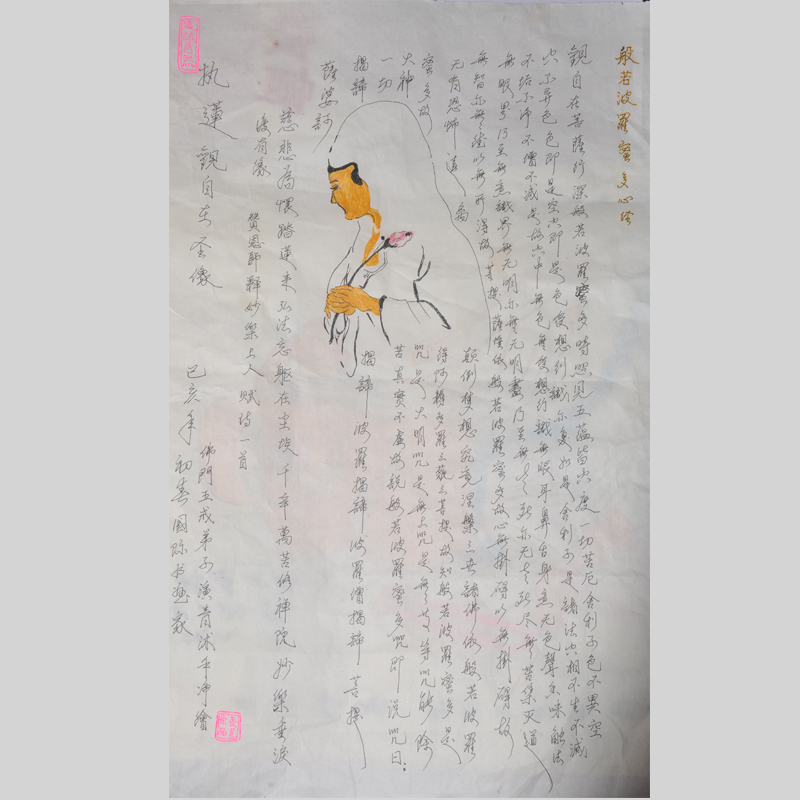 般若波羅蜜多心経
觀自在菩薩行深般若波羅蜜多時照見五蕴皆空度一切苦厄舍利子色不異空
空不异色色即是空空即是色受想行識亦复如是舍利子是諸法空相不生不滅
不垢不净不增不减是故空中無色無受想行識無眼耳鼻舌身意无色聲香味触法
無眼界乃至無意識界無无明亦無无明盡乃至無老死亦无老死尽無苦集灭道
無智亦無得以無所得故菩提薩埵依般若波羅蜜多故心無掛碍以無掛碍故
无有恐怖遠离
顛倒梦想究竟涅槃三世諸佛依般若波羅
蜜多故
得阿耨多羅三藐三菩提故知般若波羅蜜多是
大神
咒是大明咒是無上咒是無等等咒能除
一切
苦真實不虚故説般若波羅蜜多咒即说咒曰:
揭諦
揭諦波羅揭諦波羅僧揭諦菩提
薩婆訶
慈悲為懷踏蓮来弘法忘軀在尘埃千辛萬苦修禅院妙樂垂淚
後有像
贊恩師释妙樂上人赋诗一首
执蓮觀自在圣像
己亥年初春國际书画家
佛門五戒弟子演青沐手净繪